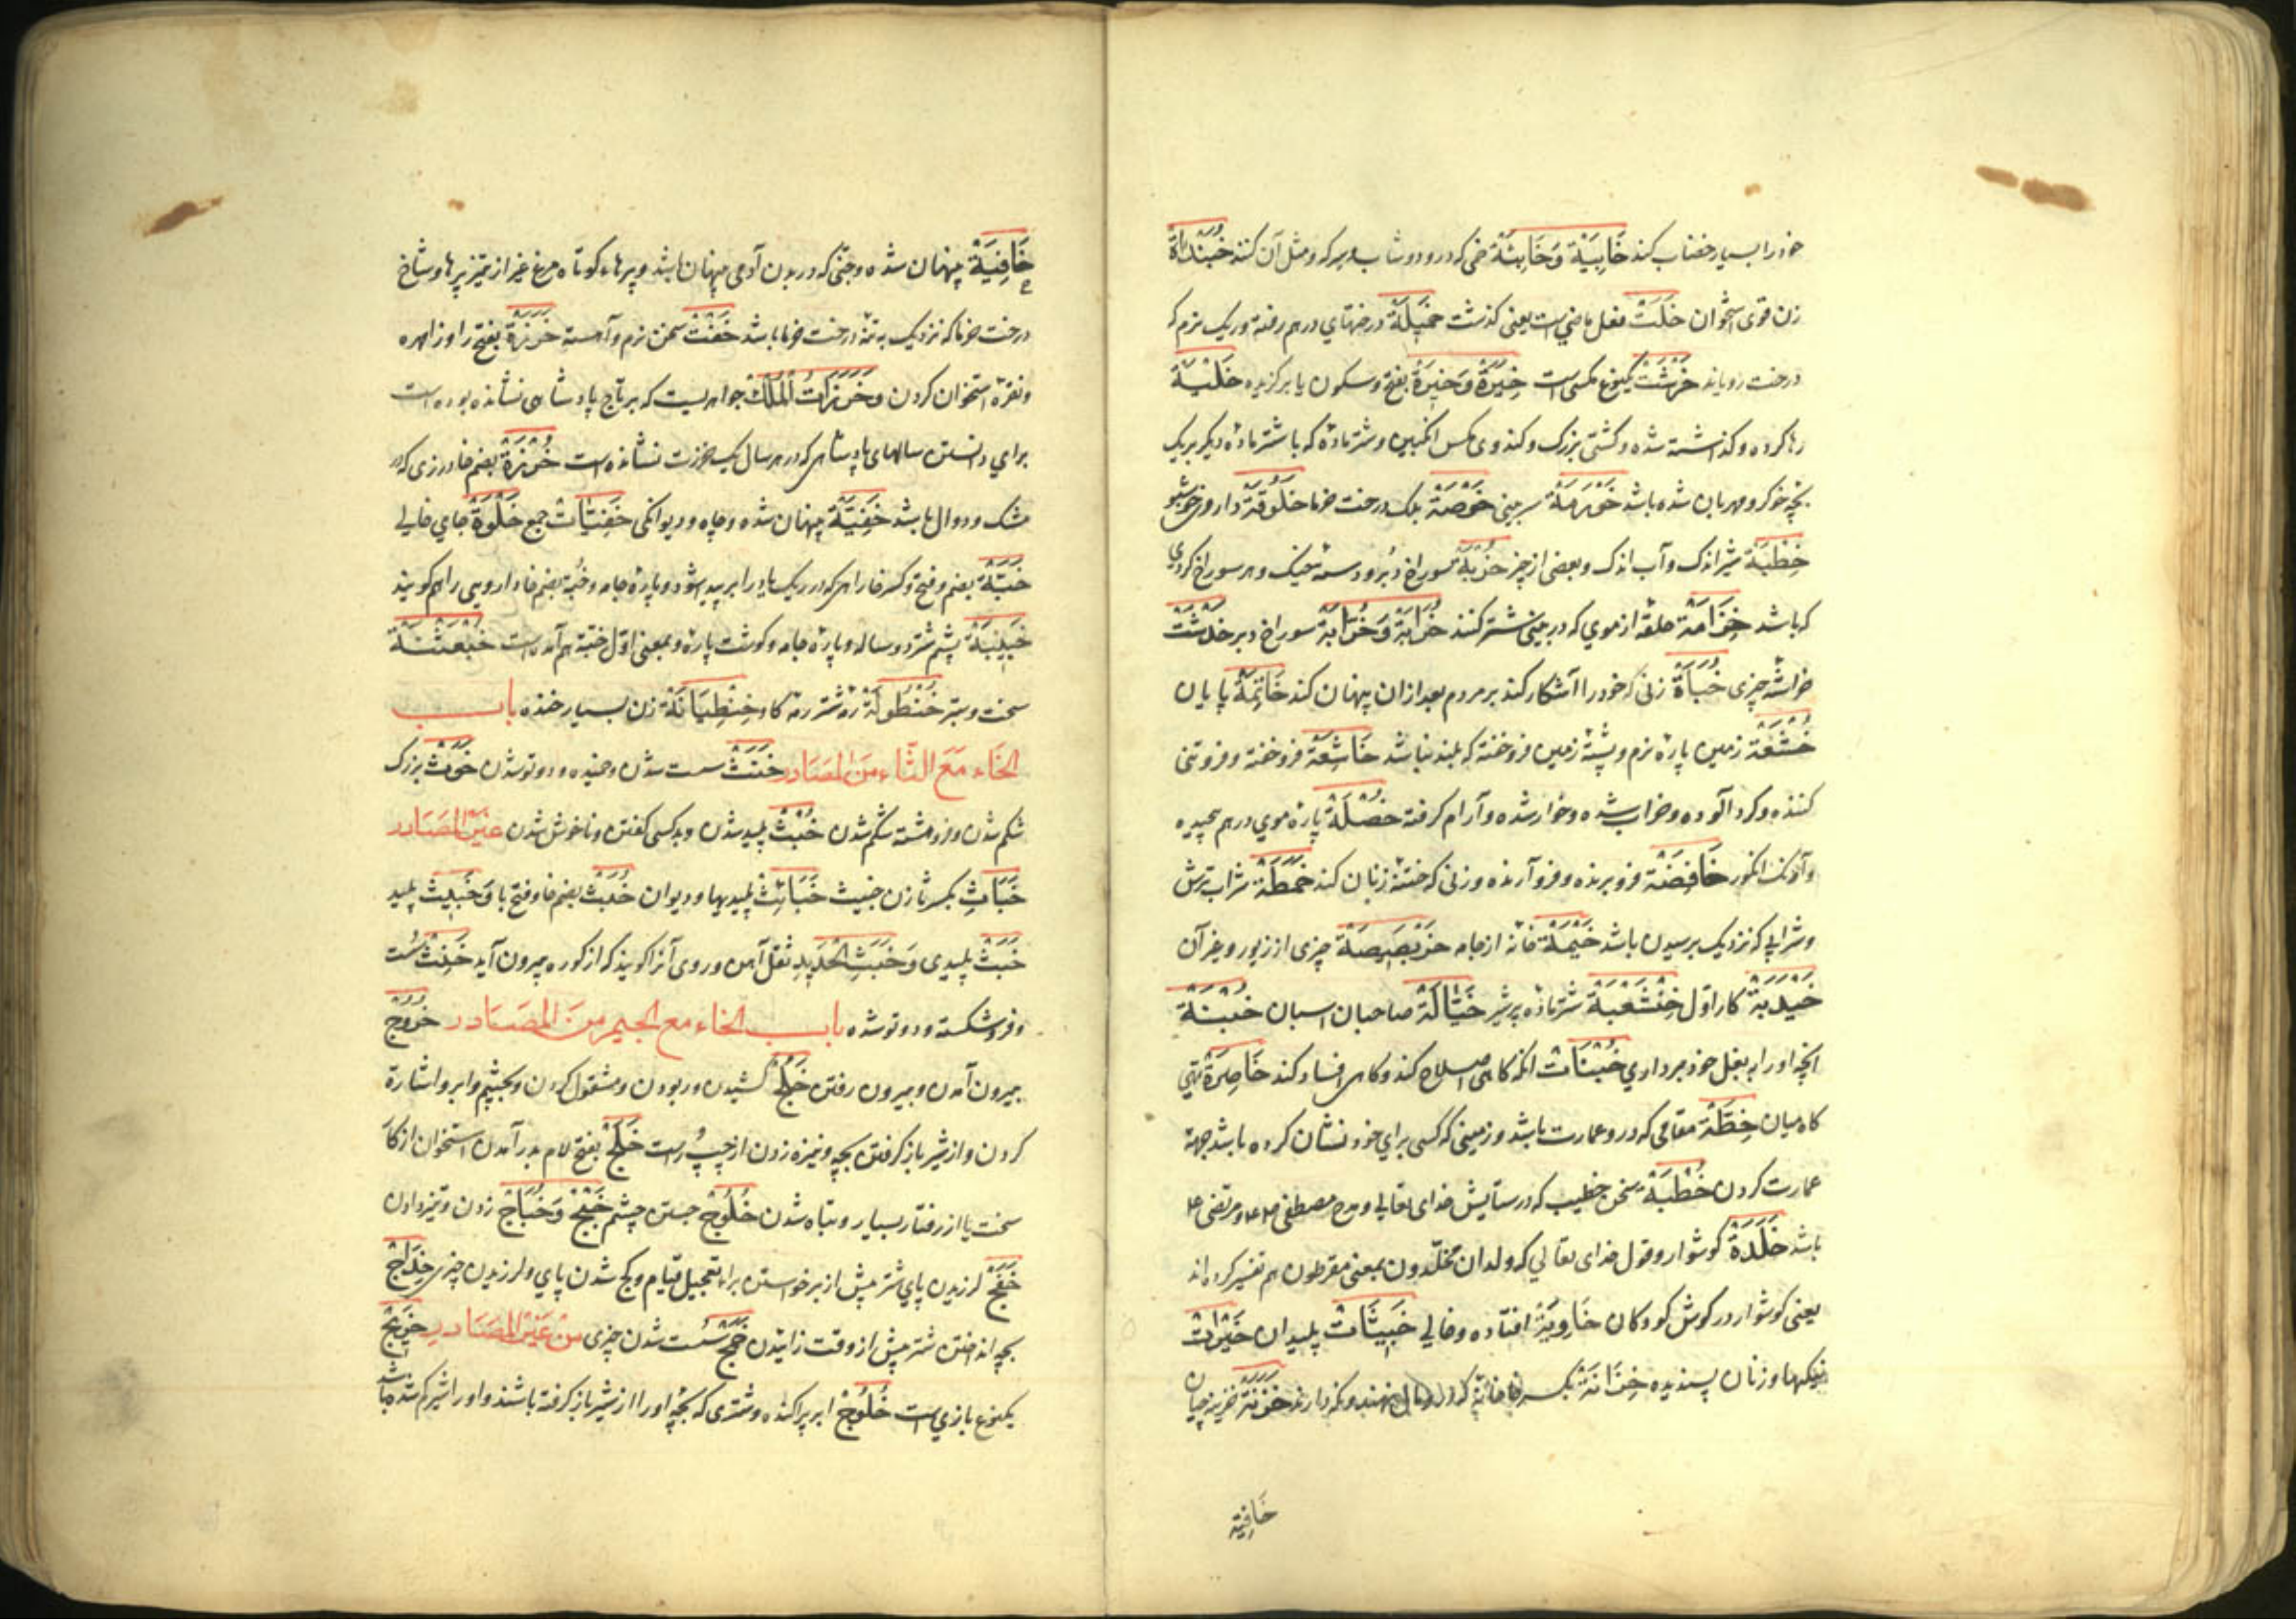 خود را بسیار خضاب کند خَابِیَة وَخَابِئَة خمی که درو دوشاب و سرکه و مثل آن کنند خَبَنْدَاة
زن قوی استخوان خَلَتْ فعل ماضی است یعنی گذشت خَمِیلَة درختهای درهم رفته و ریک نرم که
درخت رویاند یکنوع مکسی است خِیَرَة وَخِیْرَة بفتح و سکون یا برگزیده خَلِیَّة
رها کرده و گذاشته شده و کشتی بزرک و کندوی مکس انکبین و شتر ماده که با شتر ماده دیکر بر یک
بچه خو کرو مهربان شده باشد سر بینی خَوْصَة برک درخت خرما خَلُوقَة داروی خوشبو
شیر اندک و آب اندک و بعضی از چیز خُرْبَة سوراخ دبر و دسته خیک و هر سوراخ کردی
که باشد خِزَامَة حلقه از موی که در بینی شتر کنند خُرَابَة وَخُرَّابَة سوراخ دبر
خراشه چیزی خُبَأَة زنی که خود را آشکار کند بر مردم بعد از آن پنهان کند خَاتِمَة پایان
خُشْعَة زمین پاره نرم و پشته زمین فروخفته که بلند نباشد خَاشِعَة فروخفته و فروتنی
کننده و کرد آلوده و خراب شده و خوار شده و آرام کرفته خُصْلَة پاره موی درهم پیچیده
وآونک انکور خَافِضَة فروبرنده و فروآرنده و زنی که ختنه زنان کند خَمْطَة شراب ترش
و شرابی که نزدیک برسیدن باشد خَیْمَة خانه از جامه خَرْبَصِیصَة چیزی از زیور و غیر آن
خَیْدَبَة کار اول خُنْثَعْبَة شتر ماده پر شیر خَیَّالَة صاحبان اسبان خُبْنَة
انچه او را به بغل خود برداری انکه کاهی اصلاح کند و کاهی افساد کند خَاصِرَة تهی
کاه میان خِطَّة مقامی که درو عمارت باشد و زمینی که کسی برای خود نشان کرده باشد جهة
عمارت کردن خُطْبَة سخن خطیب که در ستایش خدای تعالی و مدح مصطفی صلعم و مرتضی ع
باشد خَلَدَة کوشوار و قول خدای تعالی که ولدان مخلدون بمعنی مقرطون هم تفسیر کرده اند
یعنی کوشوار در کوش کودکان خَاوِیَة افتاده و خالی خَبِیثَات پلیدان خَیْرَات
نیکیها و زنان پسندیده خِزَانَة بکسر خا خانه که در او مال بنهند و نکه دارند خَزَنَة خزینه چیان
خافیة
خَافِیَة پنهان شده و جنی که در بدن آدمی پنهان باشد و پرهاء کوتاه مرغ غیر از تیز پرها و شاخ
درخت خرما که نزدیک به تنه درخت خرما باشد خَفْت سخن نرم و آهسته خَرَزَة بفتح را و زا مهره
ونقره استخوان کردن وَخَرَزَاتُ الْمَلِک جواهریست که بر تاج پادشاهی نشانده بوده است
برای دانستن سالهای پادشاهی که در هر سال یک خرزت نشانده است خُرْزَة بضم خا درزی که در
مشک و دوال باشد خَفِیَّة پنهان شده و چاه و دیوانکی خَفِیَّات جمع خَلْوَة جای خالی
خُبَّة بضم و فتح و کسر خا راهی که در ریک یا در ابر پدید شود و پاره جامه و خبة بضم خا دارویی را هم کویند
خَبِیبَة پشم شتر دوساله و پاره جامه و کوشت پاره و بمعنی اول خبة هم آمده است خُبَعْثَنَة
سخت و ستبر خُنْطُولَة رمه شتر رمه کاو خِنْظِیَانَة زن بسیار خنده باب
الخَاء مَعَ الثَّاء مِنَ المَصَادِر خَنَث سست شدن و خمیده و دوتو شدن خَوَث بزرک
شکم شدن و فروهشته شکم شدن خُبْث پلید شدن و بد کسی کفتن و ناخوش شدن غَیْر المَصَادِر
خَبَاثِ بکسر ثا زن خبیث خَبَائِث پلیدیها و دیوان خُبَث بضم خا و فتح با وَخَبِیث پلید
خَبَث پلیدی وَخَبَثُ الحَدِید ثفل آهن و روی آنرا کویند که از کوره بیرون آید خَنِث سست
و فروشکسته و دوتو شده باب الخاء مع الجیم مِنَ المَصَادِر خُرُوج
بیرون آمدن و بیرون رفتن خَلْج کشیدن و ربودن و مشغول کردن و بچشم و ابرو اشارة
کردن و از شیر باز کرفتن بچه و نیزه زدن از چپ و راست خَلَج بفتح لام بدرآمدن استخوان از کار
سخت یا از رفتار بسیار و تباه شدن خُلُوج جستن چشم خَبْج وَخُبَاج زدن و تیز دادن
خَفَج لرزیدن پای شتر پیش از برخواستن براء تعجیل قیام و کج شدن پای و لرزیدن چیزی خِدَاج
بچه انداختن شتر پیش از وقت زائیدن سست شدن چیزی من غَیْر المَصَادِر خَرِیج
یکنوع بازی است خَلُوج ابر پراکنده و شتری که بچه او را از شیر باز کرفته باشند و او را شیر کم شده باشد